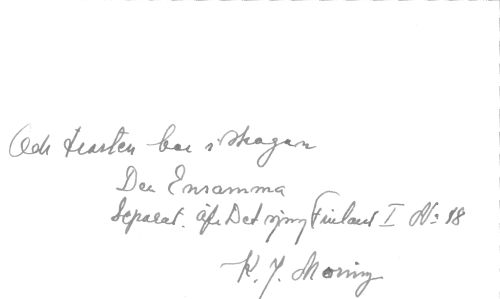 Och trasten bor i skogen
Den Ensamma
Separat. afr Det sjung Finland I No: 18
K. J. Moring